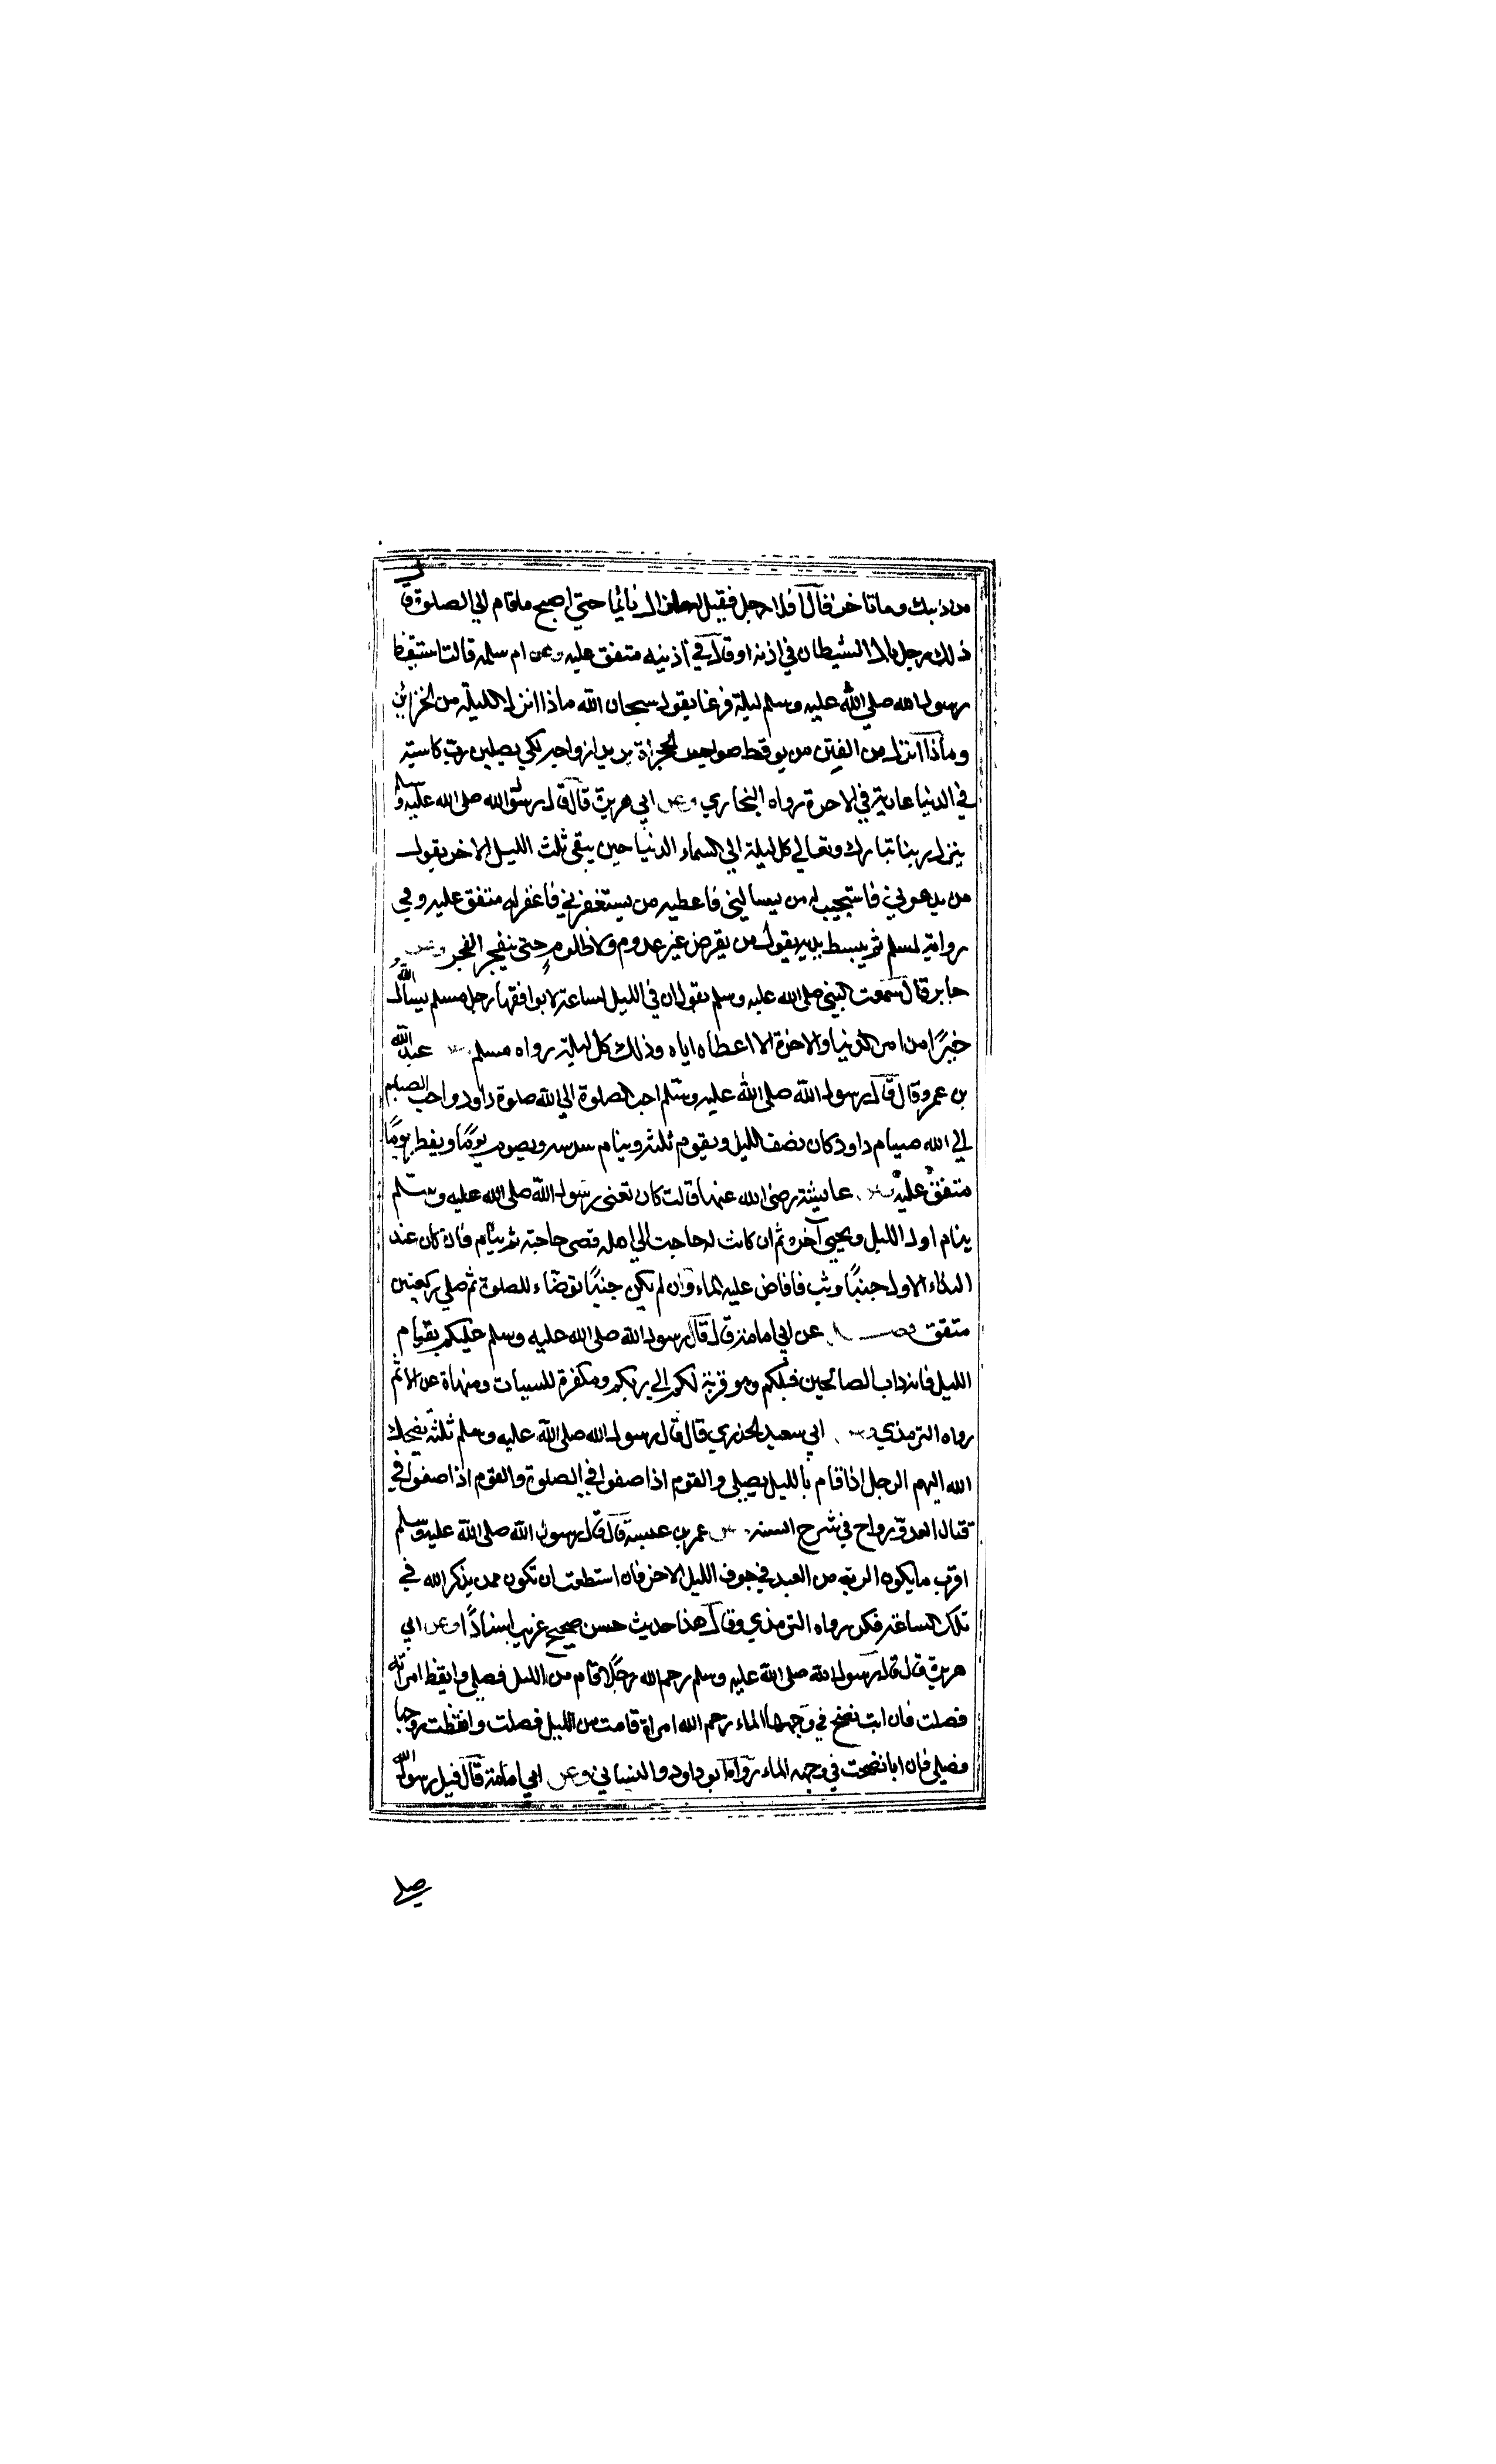 من ذنبك وما تاخر قال افلا رجل فقيل له مازال نائما حتى اصبح ما قام الى الصلوة قال
ذلك رجل بال الشيطان في اذنه او قال في اذنيه متفق عليه وعن ام سلمه قالت استيقظ
رسول الله صلى الله عليه وسلم ليلة فزعا يقول سبحان الله ماذا انزل الليلة من الخزائن
وماذا انزل من الفتن من يوقظ صواحب الحجرات يريد ازواجه لكي يصلين رب كاسية
في الدنيا عارية في الاخرة رواه البخاري وعن ابي هريرة قال قال رسول الله صلى الله عليه وسلم
ينزل ربنا تبارك وتعالى كل ليلة الى السماء الدنيا حين يبقى ثلث الليل الاخر يقول
من يدعوني فاستجيب له من يسالني فاعطيه من يستغفرني فاغفر له متفق عليه وفي
رواية لمسلم ثم يبسط يديه يقول من يقرض غير عدوم ولا ظلوم حتى ينفجر الفجر وعن
جابر قال سمعت النبي صلى الله عليه وسلم يقول ان في الليل لساعة لا يوافقها رجل مسلم يسال الله
خيرًا من امر الدنيا والاخرة الا اعطاه اياه وذلك كل ليلة رواه مسلم وعن عبد الله
بن عمرو قال قال رسول الله صلى الله عليه وسلم احب الصلوة الى الله صلوة داود واحب الصيام
الى الله صيام داود كان نصف الليل ويقوم ثلثه وينام سدسه ويصوم يومًا ويفطر يومًا
متفق عليه وعن عايشة رضى الله عنها قالت كان تعنى رسول الله صلى الله عليه وسلم
ينام اول الليل ويحيى آخره ثم ان كانت له حاجت الى اهله قضى حاجته ثم ينام فان كان عند
النداء الاول جنبًا وثب فافاض عليه الماء وان لم يكن جنبًا توضاء للصلوة ثم صلى ركعتين
متفق عن ابي امامة قال قال رسول الله صلى الله عليه وسلم عليكم بقيام
الليل فانه داب الصالحين قبلكم وهو قربة لكم الى ربكم ومكفرة للسيات ومنهاة عن الاثم
رواه الترمذي وعن ابي سعيد الخدري قال قال رسول الله صلى الله عليه وسلم ثلثة يضحك
الله اليهم الرجل اذا قام بالليل يصلى والقوم اذا صفوا في الصلوة والقوم اذا صفوا في
قتال العدو رواه في شرح السنة وعن عمر بن عبسة قال قال رسول الله صلى الله عليه وسلم
اقرب ما يكون الرب من العبد في جوف الليل الاخر فان استطعت ان تكون ممن يذكر الله في
تلك الساعة فكن رواه الترمذي وقال هذا حديث حسن صحيح غريب اسنادًا وعن ابي
هريرة قال قال رسول الله صلى الله عليه وسلم رحم الله رجلًا قام من الليل فصلى وايقظ امراته
فصلت فان ابت نضح في وجهها الماء رحم الله امراة قامت من الليل فصلت وايقظت زوجها
فصلى فان ابا نضحت في وجهه الماء رواه ابو داود والنسائي وعن ابي امامة قال قيل رسول الله
صلى